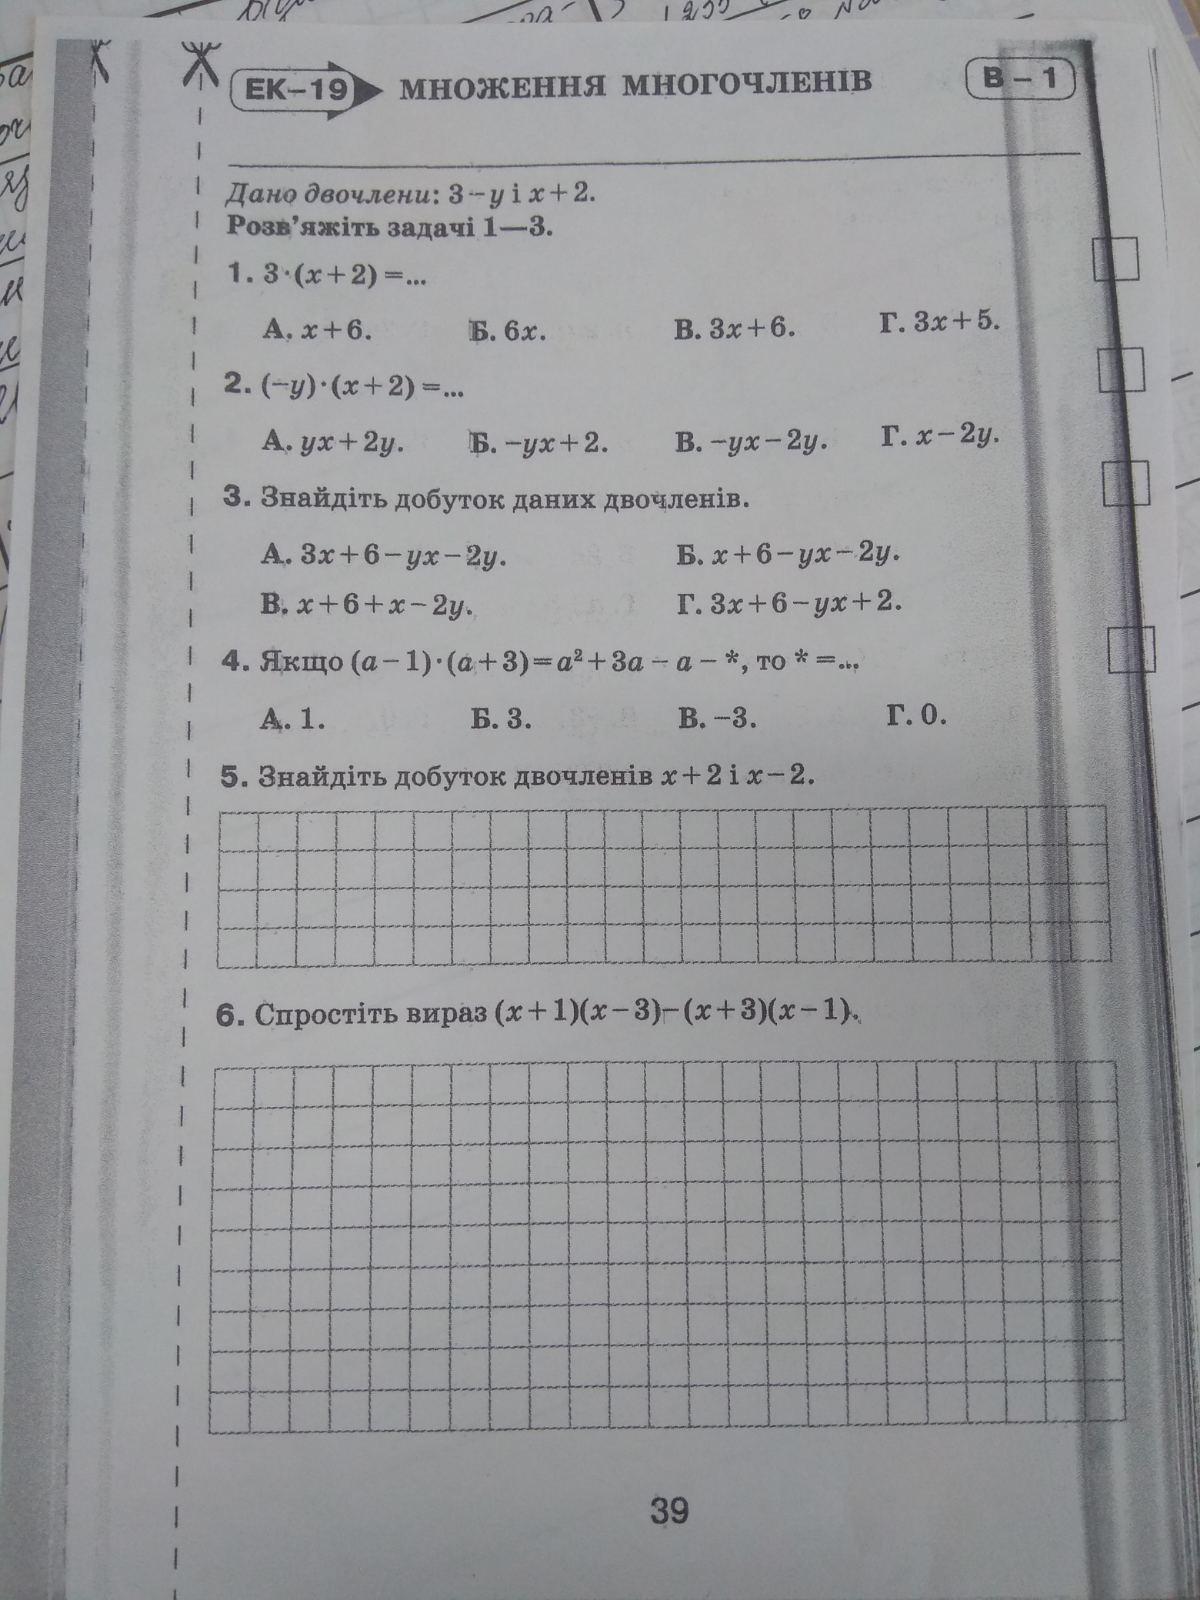 ЕК–19 МНОЖЕННЯ МНОГОЧЛЕНІВ В – 1
Дано двочлени: 3 – y і x + 2.
Розв'яжіть задачі 1—3.
1. 3·(x + 2) = ...
А. x + 6. Б. 6x. В. 3x + 6. Г. 3x + 5.
2. (–y)·(x + 2) = ...
А. yx + 2y. Б. –yx + 2. В. –yx – 2y. Г. x – 2y.
3. Знайдіть добуток даних двочленів.
А. 3x + 6 – yx – 2y. Б. x + 6 – yx – 2y.
В. x + 6 + x – 2y. Г. 3x + 6 – yx + 2.
4. Якщо (a – 1)·(a + 3) = a² + 3a – a – *, то * = ...
А. 1. Б. 3. В. –3. Г. 0.
5. Знайдіть добуток двочленів x + 2 і x – 2.
6. Спростіть вираз (x + 1)(x – 3) – (x + 3)(x – 1).
39